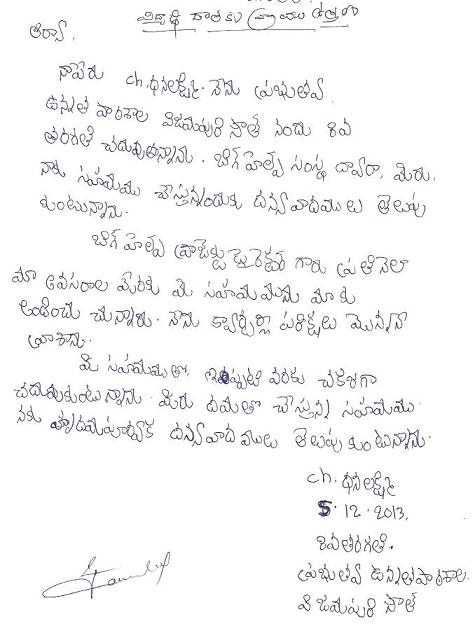 విద్యార్థి దాతకు వ్రాయు ఉత్తరం
ఆర్యా,
నాపేరు ch. ధనలక్ష్మి. నేను ప్రభుత్వ
ఉన్నత పాఠశాల విజయపురి సౌత్ నందు 8వ
తరగతి చదువుతున్నాను. బిగ్ హెల్ప్ సంస్థ ద్వారా, మీరు,
నాకు సహాయము చేస్తున్నందుకు ధన్యవాదములు తెలుపు
కుంటున్నాను.
బిగ్ హెల్ప్ ప్రాజెక్టు డైరెక్టర్ గారు ప్రతినెలా
మా అవసరాల మేరకు మీ సహాయమును మాకు
అందించు చున్నారు. నేను క్వార్టర్లీ పరీక్షలు మొన్ననే
వ్రాశాను.
మీ సహాయముతో ఇప్పటి వరకు చక్కగా
చదువుకుంటున్నాను. మీరు దయతో చేస్తున్న సహాయము
నకు హృదయపూర్వక ధన్యవాదములు తెలుపుకుంటున్నాను.
ch. ధనలక్ష్మి
5.12.2013,
8వతరగతి.
ప్రభుత్వ ఉన్నతపాఠశాల
విజయపురి సౌత్